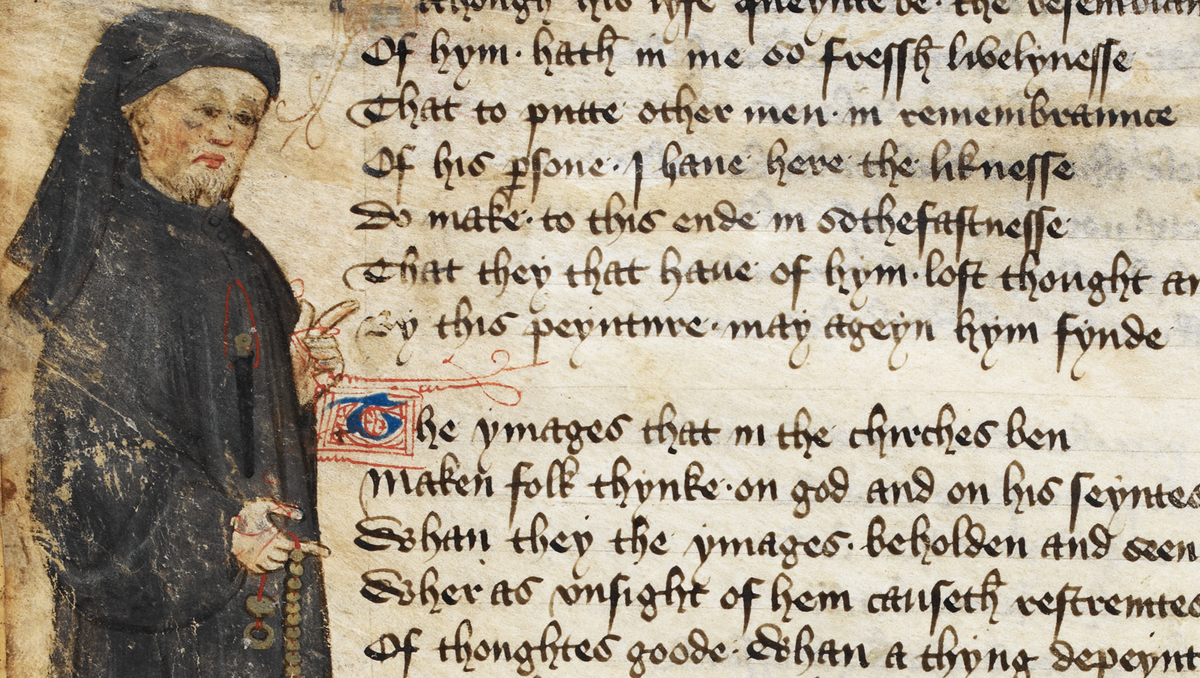 Of hym· hath in me so fressh lyvelynesse
That to putte other men· in remembraunce
Of his ꝑsone· I haue here the liknesse
Do make· to this ende in sothefastnesse
That they that haue of hym· lost thought
By this peynture· may ageyn hym fynde
The ymages that in the chirches ben
Maken folk thynke· on god and on his seyntes
Whan they the ymages· beholden and seen
Wher as vnsight of hem causeth restreintes
Of thoughtes goode· Whan a thyng depeynt